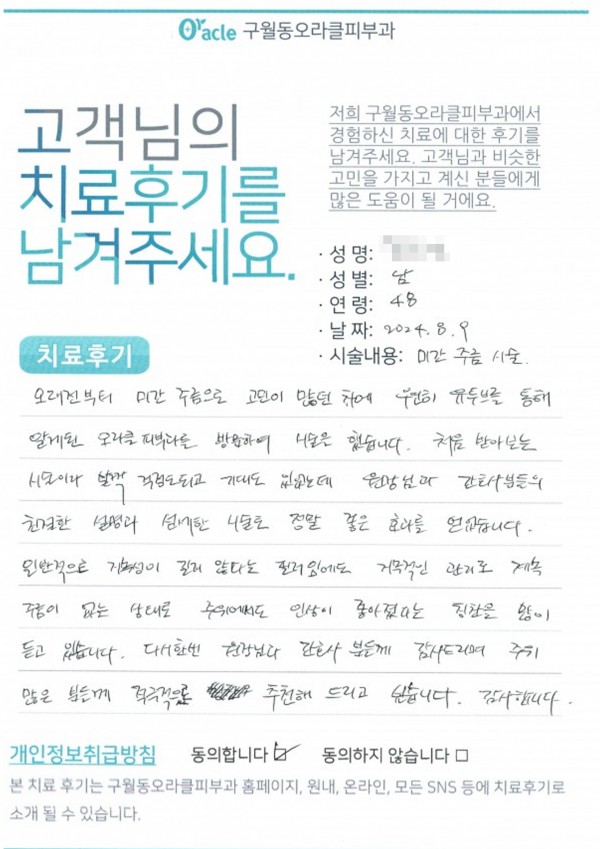 Oracle 구월동오라클피부과
고객님의
치료후기를
남겨주세요.
저희 구월동오라클피부과에서
경험하신 치료에 대한 후기를
남겨주세요. 고객님과 비슷한
고민을 가지고 계신 분들에게
많은 도움이 될 거에요.
· 성 명:
· 성 별: 남
· 연 령: 48
· 날 짜: 2024. 8. 9
· 시술내용: 미간 주름 시술.
치료후기
오래전부터 미간 주름으로 고민이 많던 차에 우연히 유투브를 통해
알게된 오라클 피부과를 방문하여 시술을 했습니다. 처음 받아보는
시술이라 살짝 걱정도되고 기대도 되었는데 원장님과 간호사분들의
친절한 설명과 섬세한 시술로 정말 좋은 효과를 얻었습니다.
일반적으로 지속성이 길지 않다는 편견과 달리
주름이 없는 상태로 주위에서도 인상이 좋아졌다는 칭찬을 많이
듣고 있습니다. 다시한번 원장님과 간호사 분들께 감사드리며 주위
많은 분들께 적극적으로 추천해 드리고 싶습니다. 감사합니다.
개인정보취급방침 동의합니다 ☑ 동의하지 않습니다 □
본 치료 후기는 구월동오라클피부과 홈페이지, 원내, 온라인, 모든 SNS 등에 치료후기로
소개 될 수 있습니다.